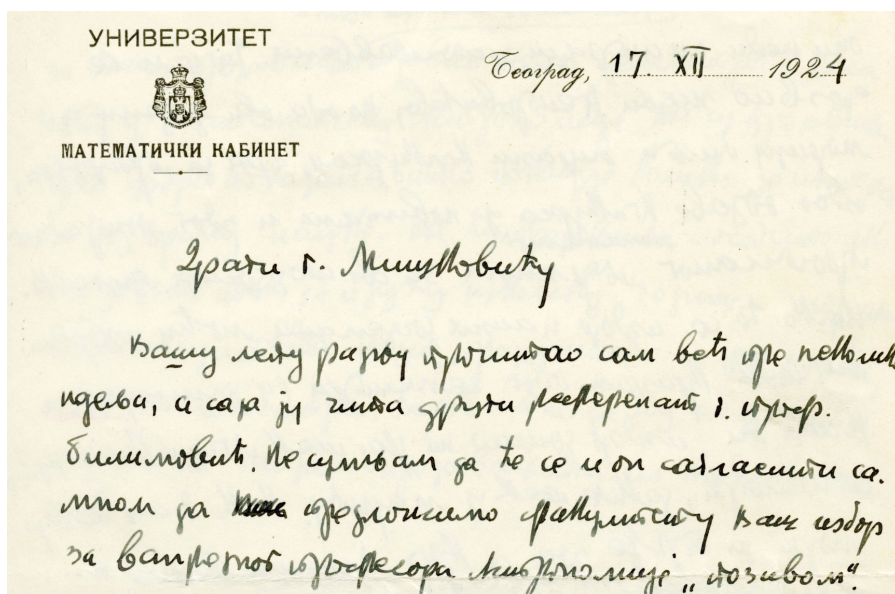 УНИВЕРЗИТЕТ
МАТЕМАТИЧКИ КАБИНЕТ
Београд, 17. XII 1924
Драги г. Мишковићу
Вашу лепу радњу прочитао сам већ пре неколико
недеља, а сада ју чита други референт г. проф.
Билимовић. Не сумњам да ће се и он сагласити са
мном да предложимо факултету Ваш избор
за ванредног професора Астрономије „позивом“.